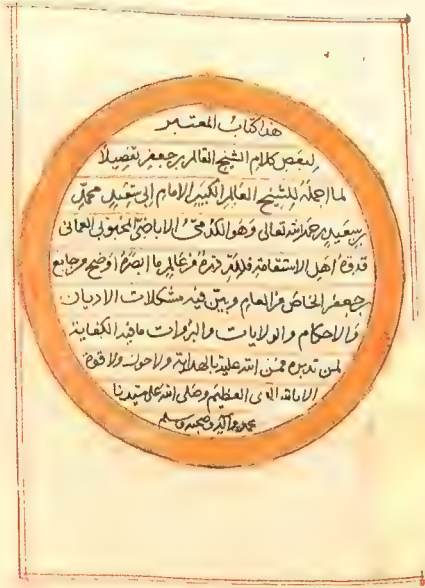 هذا كتاب المعتبر
لبعض كلام الشيخ العالم بن جعفر تفصيلاً
لما اجمله للشيخ العالم الكبير الامام ابي سعيد محمد بن
سعيد رحمه الله تعالى وهو الكدمي الاباضي المحبوبي العماني
قدوة اهل الاستقامة فلله دره من عالم ما ابصره اوضح من جامع
بن جعفر الخاص والعام وبين فيه مشكلات الاديان
والاحكام والولايات والبراءات ما فيه الكفاية
لمن تدبره ممن من الله عليه بالهداية ولا حول ولا قوة
الا بالله العلي العظيم وصلى الله على سيدنا
محمد واله وصحبه وسلم